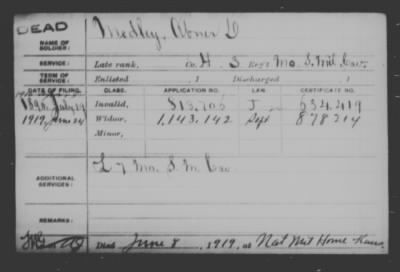 DEAD
Medley, Abner D
NAME OF SOLDIER:
SERVICE: Late rank, Co. H, 5 Reg't Mo. S. Mil. Cav.
TERM OF SERVICE: Enlisted , 1 Discharged , 1
DATE OF FILING. CLASS. APPLICATION NO. LAW. CERTIFICATE NO.
1890, July 19 Invalid, 813,706 J 634,419
1919, June 24 Widow, 1,143,142 Sept 878214
Minor,
ADDITIONAL SERVICES: L 7 Mo. S. M. Cav
REMARKS:
Died June 8, 1919, at Nat Mil Home Kans